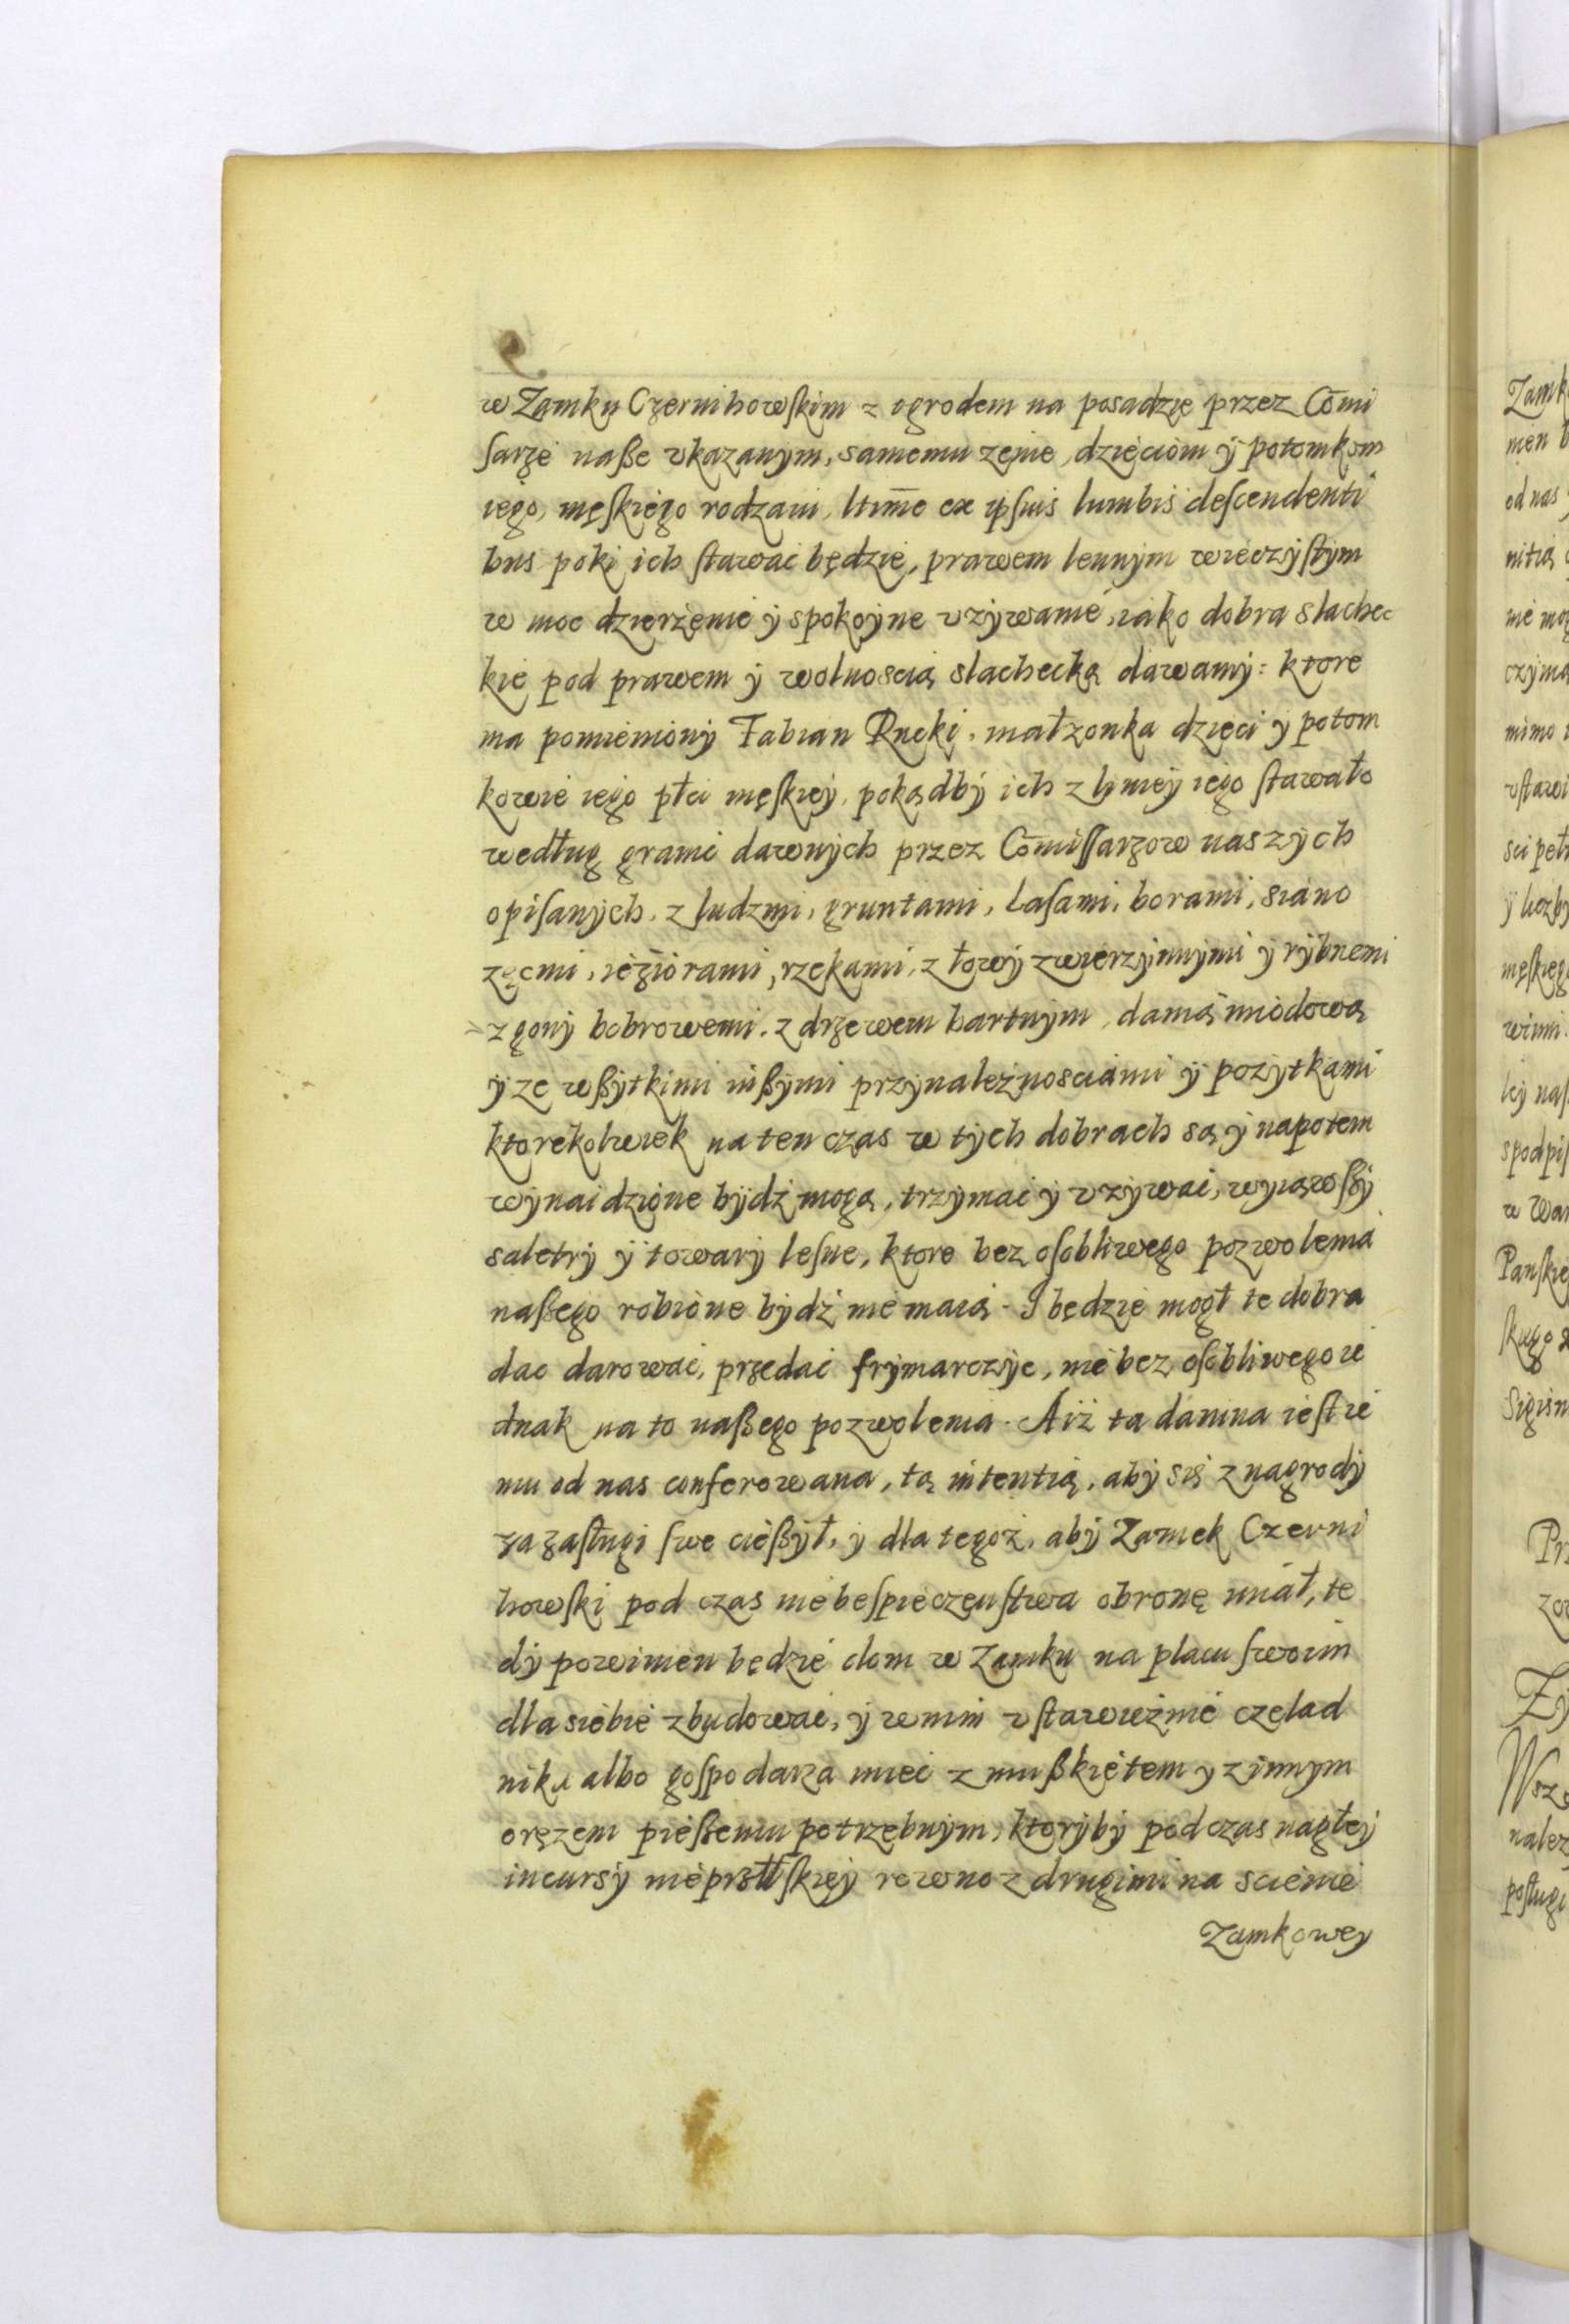 w Zamku Czernihowskim z ogrodem na posadzie przez Cōmi
sarze naße vkazanym, samemu zenie, dzieciom ÿ potomkom
iego, męskiego rodzaiu, ltim̄e ex ipsius lumbis descendenti
bus poki ich stawać będzie, prawem lennym wieczystym
w moc dzierżenie ÿ spokoyne vżywanie, iako dobra slachec
kie pod prawem ÿ wolnoscią slachecką dawamy: ktore
ma pomieniony Fabian Rucki, małzonka dzieci ÿ potom
kowie iego płci męskiey, pokądby ich z liniey iego stawało
według granic dawnych przez Cōmissarzow naszych
opisanych, z ludzmi, gruntami, Lasami, borami, siano
zęcmi, ieziorami, rzekami, z łowy zwierzynnymi ÿ rybnemi
z gony bobrowemi, z drzewem bartnym, danią miodową
ÿ ze wßytkimi inßymi przynależnosciami ÿ pozytkami
ktorekolwiek na ten czas w tych dobrach są ÿ napotem
wynaidzione bydź mogą, trzymać ÿ vzywać, wyiąwßy
saletry ÿ towary lesne, ktore bez osobliwego pozwolenia
naßego robione bydź nie maią. I będzie mogł te dobra
dac darowac, przedac frymarczyc, nie bez osobliwego ie
dnak na to naßego pozwolenia. A iż ta danina iest ie
mu od nas conferowana, tą intentią, aby się z nagrody
za zasługi swe cießył, ÿ dla tegoż, aby Zamek Czerni
howski pod czas niebespieczenstwa obronę miał, te
dy powinien będzie dom w Zamku na placu swoim
dla siebie zbudować, ÿ w nim vstawicżnie czelad
nika albo gospodarza mieć z mußkietem y z innym
orężem pießemu potrzebnym, ktoryby pod czas nagłey
incursÿ nieprztlskiey rowno z drugimi na scienie
Zamkowey
Zamk
od nas
czyma
mimo
vstawi
w War
Panskie
Sigism